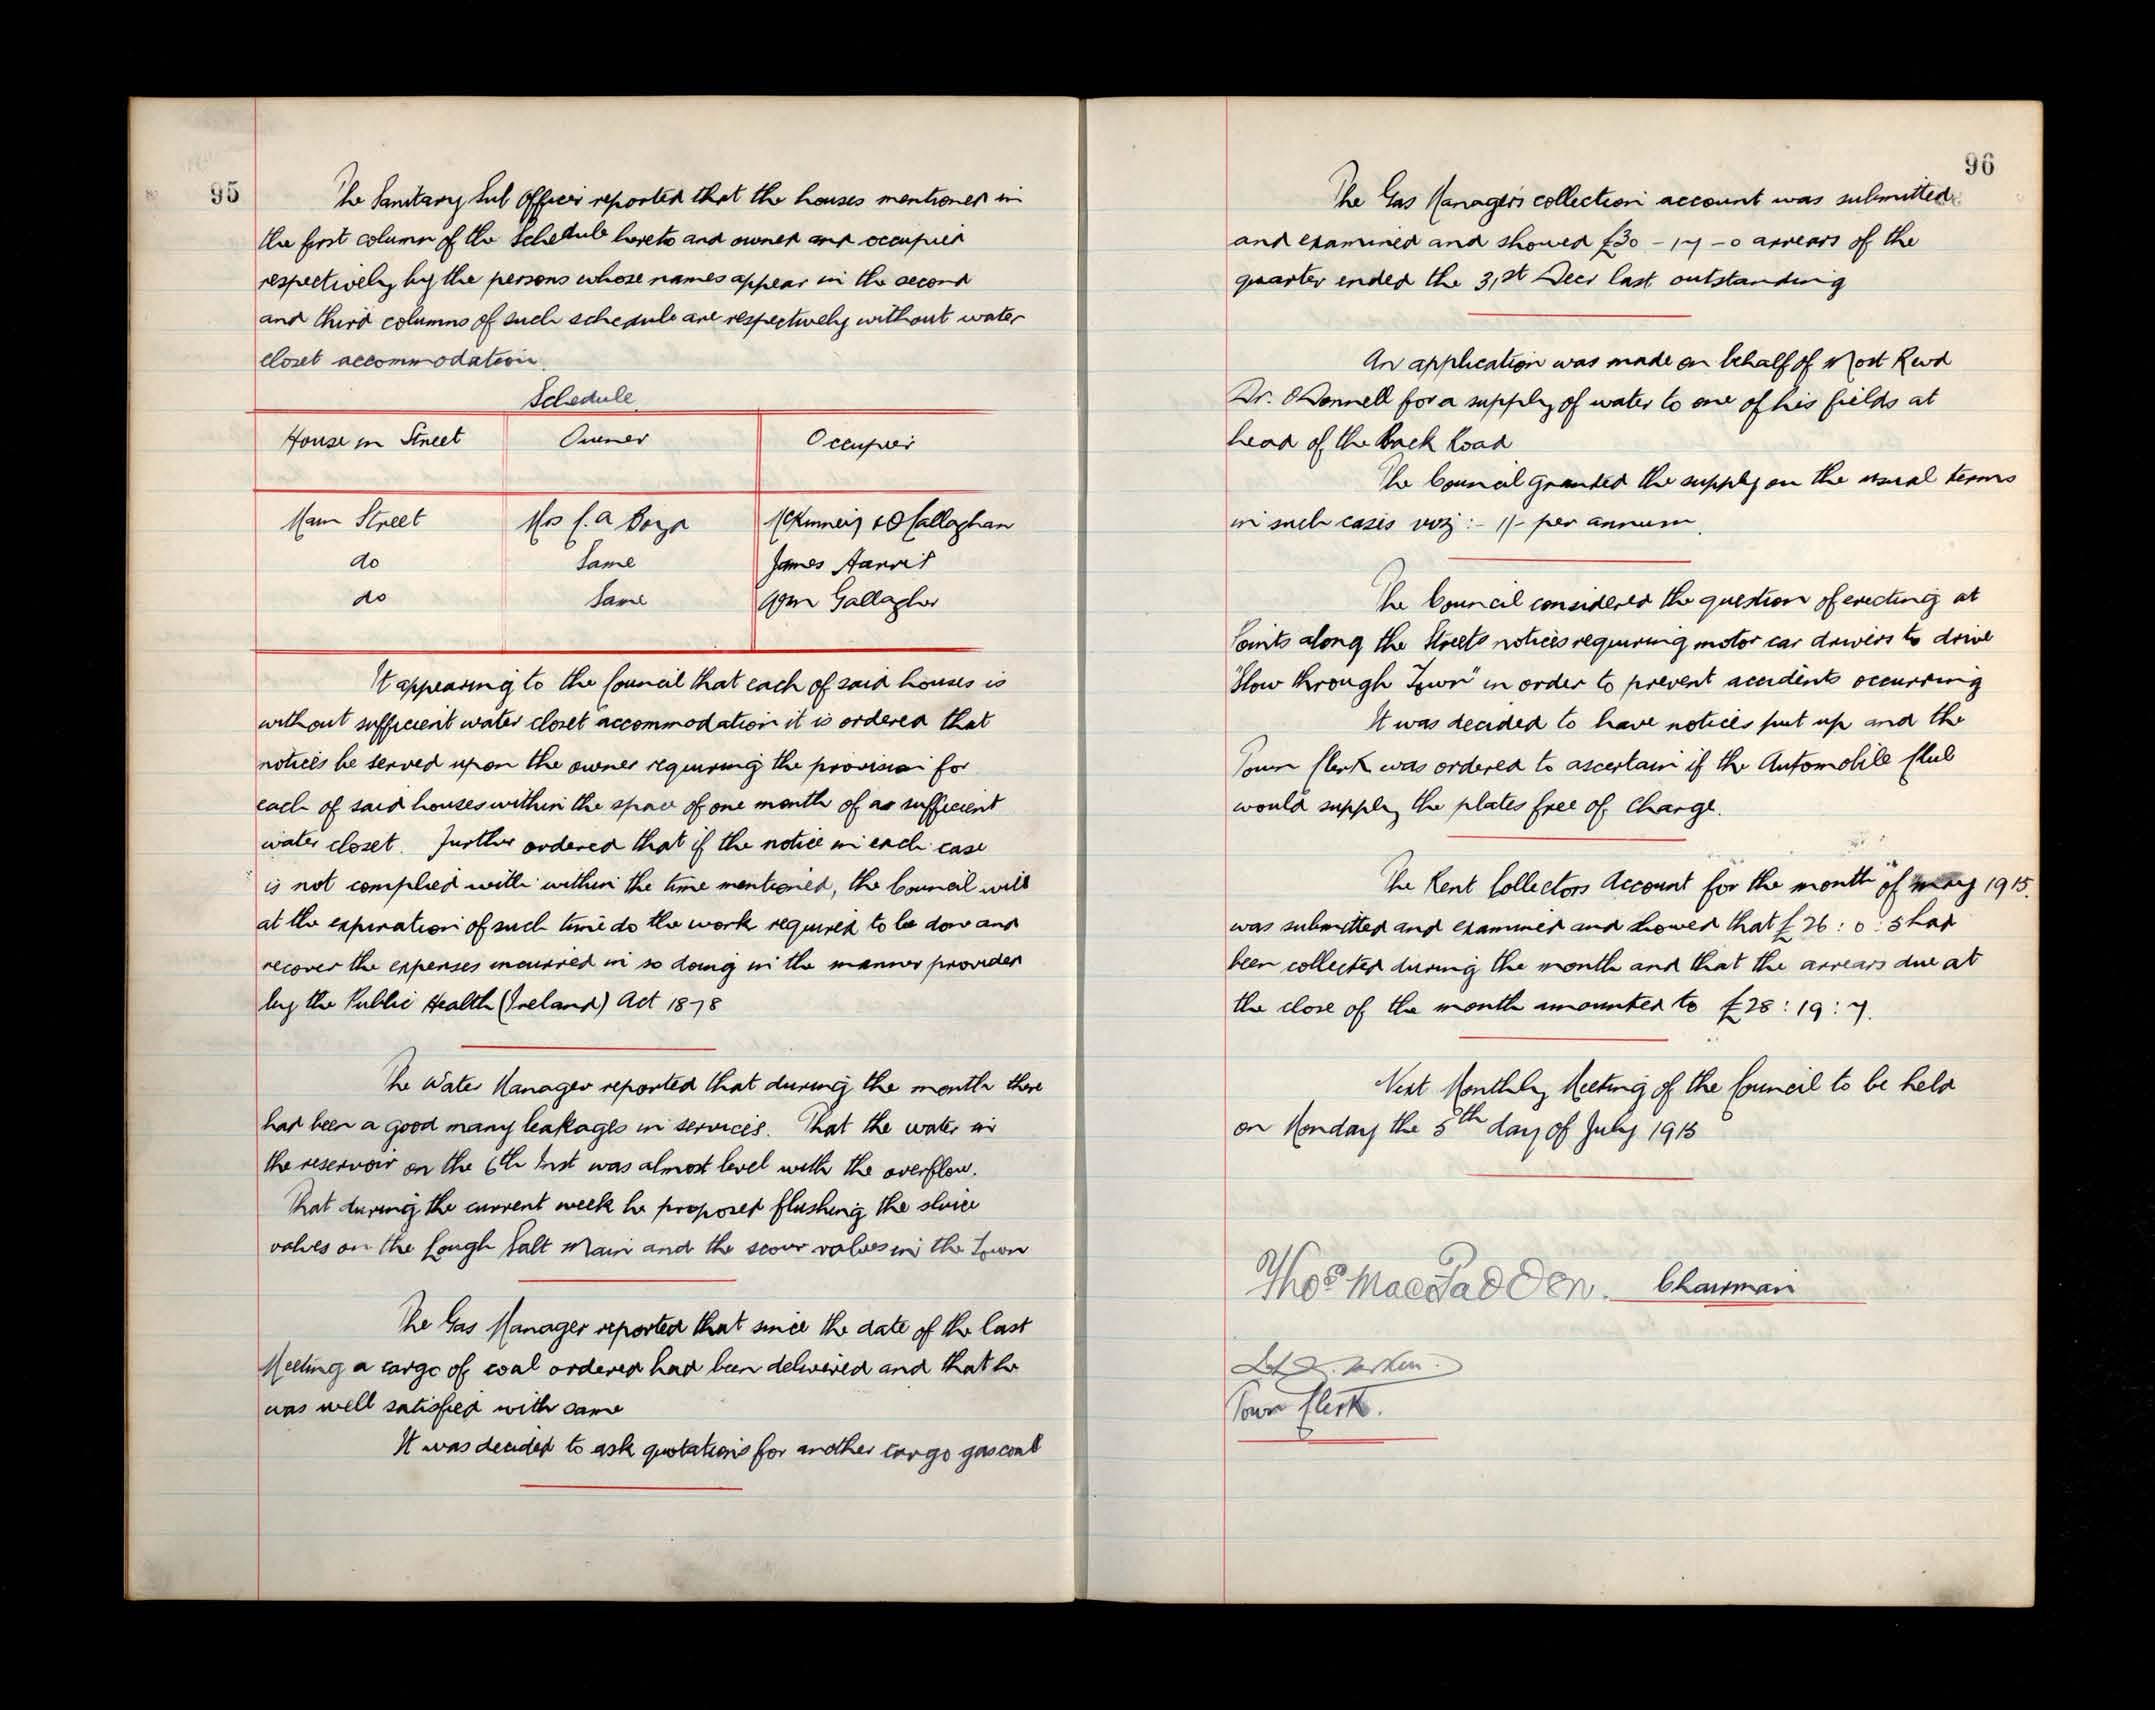 95
The Sanitary Sub Officer reported that the houses mentioned in
the first column of the Schedule hereto and owned and occupied
respectively by the persons whose names appear in the second
and third columns of such schedule are respectively without water
closet accommodation.
Schedule
House in Street Owner Occupier
Main Street Mrs C. A Boyd McKinney & O Callaghan
do Same James
do Same Gallagher
It appearing to the Council that each of said houses is
without sufficient water closet accommodation it is ordered that
notices be served upon the owner requiring the provision for
each of said houses within the space of one month of a sufficient
water closet. Further ordered that if the notice in each case
is not complied with within the time mentioned, the Council will
at the expiration of such time do the work required to be done and
recover the expenses incurred in so doing in the manner provided
by the Public Health (Ireland) Act 1878
The Water Manager reported that during the month there
had been a good many leakages in services. That the water in
the reservoir on the 6th Inst was almost level with the overflow.
That during the current week he proposed flushing the sluice
valves on the Lough Salt Main and the scour valves in the Town
The Gas Manager reported that since the date of the last
Meeting a cargo of coal ordered had been delivered and that he
was well satisfied with same
It was decided to ask quotations for another cargo gas coal
96
The Gas Manager's collection account was submitted
and examined and showed £30 - 17 - 0 arrears of the
quarter ended the 31st Decr last outstanding
An application was made on behalf of Most Revd
Dr. O'Donnell for a supply of water to one of his fields at
head of the Back Road
The Council granted the supply on the usual terms
in such cases viz :- 1/- per annum.
The Council considered the question of erecting at
Points along the Streets notices requiring motor car drivers to drive
"Slow through Town" in order to prevent accidents occurring
It was decided to have notices put up and the
Town Clerk was ordered to ascertain if the Automobile Club
would supply the plates free of charge.
The Rent Collectors Account for the month of May 1915.
was submitted and examined and showed that £26 : 0 : 5 had
been collected during the month and that the arrears due at
the close of the month amounted to £28 : 19 : 7.
Next Monthly Meeting of the Council to be held
on Monday the 5th day of July 1915
Thos MacFadden. Chairman
Town Clerk.